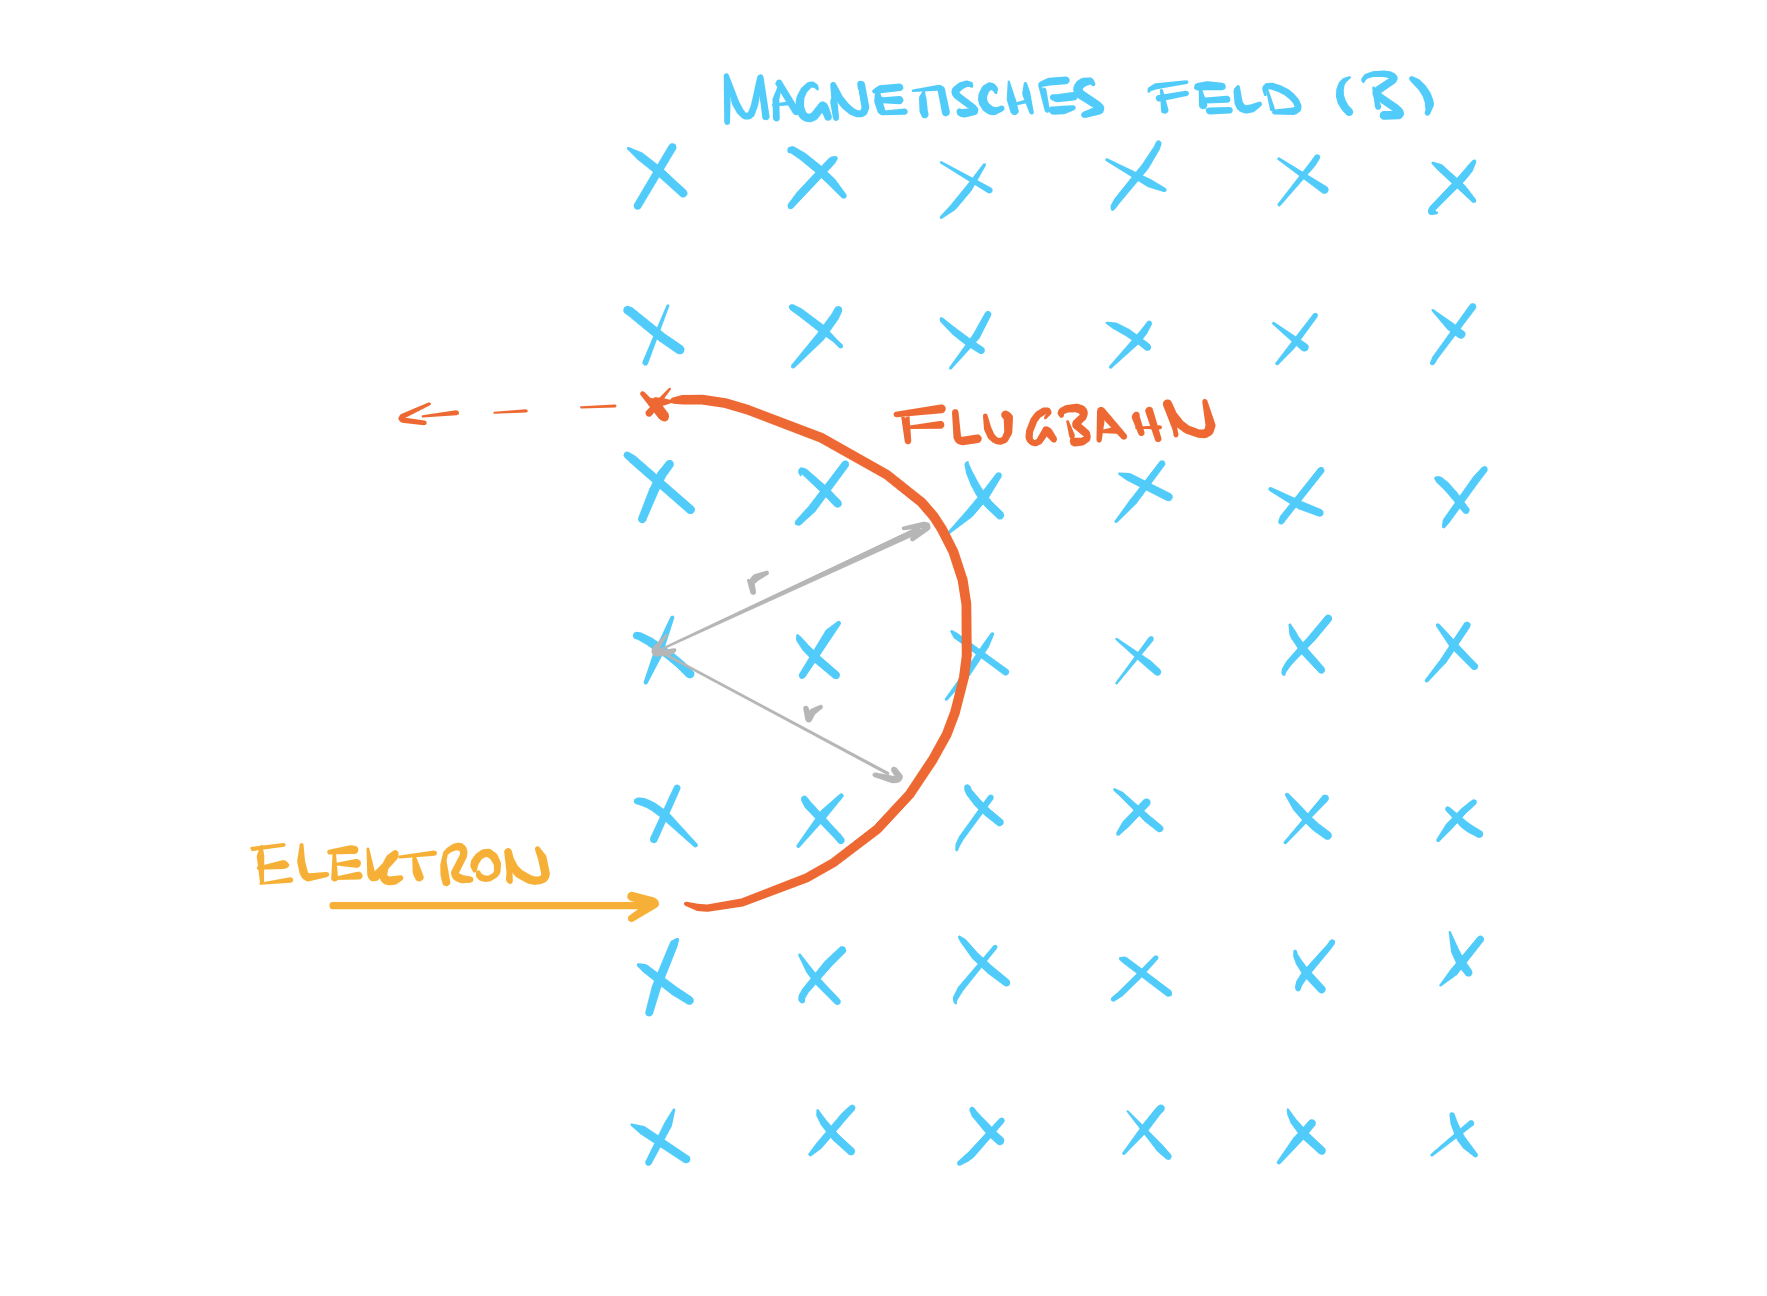 MAGNETISCHES FELD (B)
FLUGBAHN
r
r
ELEKTRON